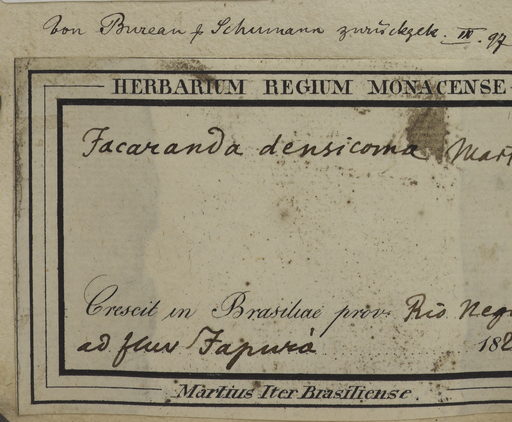 Von Bureau & Schumann zurückgek. III. 97
HERBARIUM REGIUM MONACENSE
Jacaranda densicoma Mart
Crescit in Brasiliae prov. Rio Negr
ad fluv Japurà 182
Martius Iter Brasiliense.